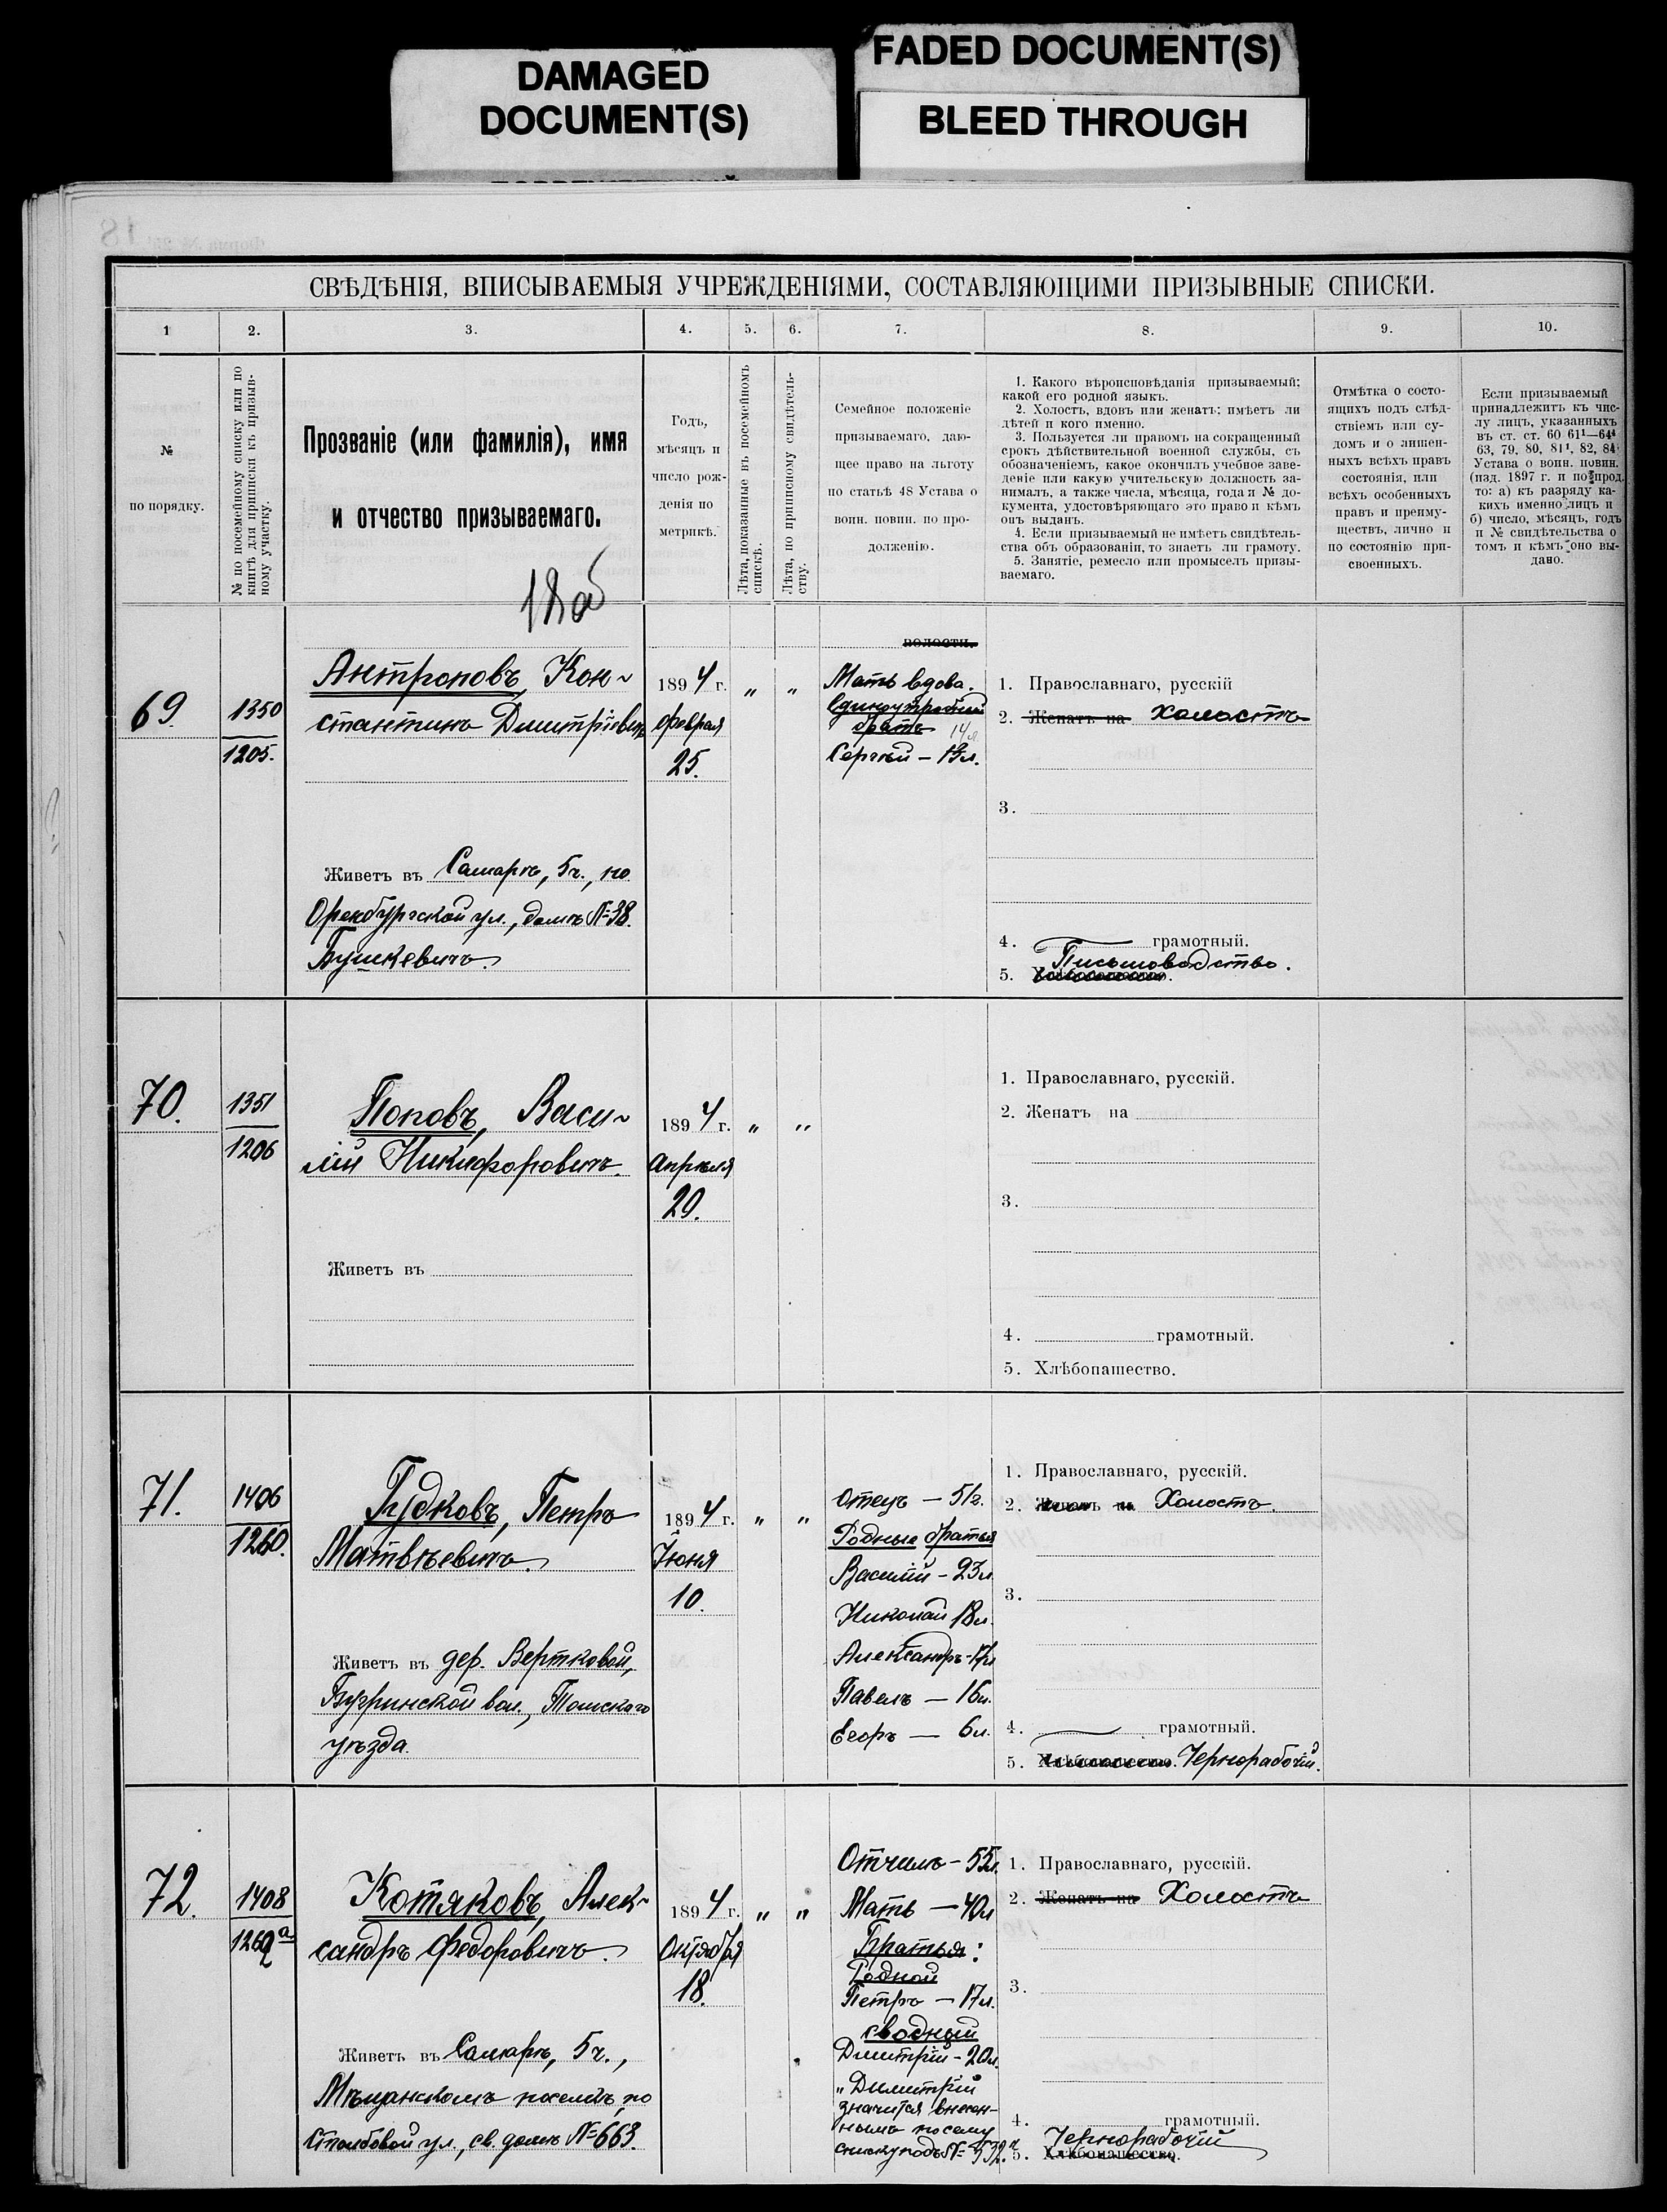 DAMAGED
DOCUMENT(S)
FADED DOCUMENT(S)
BLEED THROUGH
СВѢДѢНІЯ, ВПИСЫВАЕМЫЯ УЧРЕЖДЕНІЯМИ, СОСТАВЛЯЮЩИМИ ПРИЗЫВНЫЕ СПИСКИ.
1 2. 3. 4. 5. 6. 7. 8. 9. 10.
№
по порядку.
№ по посемейному списку или по
книгѣ для приписки къ призыв-
ному участку.
Прозваніе (или фамилія), имя
и отчество призываемаго.
Годъ,
мѣсяцъ и
число рож-
денія по
метрикѣ.
Лѣта, показанные въ посемейномъ
спискѣ.
Лѣта, по приписному свидѣтель-
ству.
Семейное положеніе
призываемаго, даю-
щее право на льготу
по статьѣ 48 Устава о
воин. повин. по про-
долженію.
1. Какого вѣроисповѣданія призываемый;
какой его родной языкъ.
2. Холостъ, вдовъ или женатъ; имѣетъ ли
дѣтей и кого именно.
3. Пользуется ли правомъ на сокращенный
срокъ дѣйствительной военной службы, съ
обозначеніемъ, какое окончилъ учебное заве-
деніе или какую учительскую должность за-
нималъ, а также числа, мѣсяца, года и № до-
кумента, удостовѣряющаго это право и кѣмъ
онъ выданъ.
4. Если призываемый не имѣетъ свидѣтель-
ства объ образованіи, то знаетъ ли грамоту.
5. Занятіе, ремесло или промыселъ призы-
ваемаго.
Отмѣтка о состо-
ящихъ подъ слѣд-
ствіемъ или су-
домъ и о лишен-
ныхъ всѣхъ правъ
состоянія, или
всѣхъ особенныхъ
правъ и преиму-
ществъ, лично и
по состоянію при-
своенныхъ.
Если призываемый
принадлежитъ къ чис-
лу лицъ, указанныхъ
въ ст. ст. 60 61¹—64⁴
63, 79, 80, 81¹, 82, 84
Устава о воин. повин.
(изд. 1897 г. и по прод.
то: а) къ разряду ка-
кихъ именно лицъ и
б) число, мѣсяцъ, годъ
и № свидѣтельства о
томъ и кѣмъ оно вы-
дано.
18об
69.
1350
1205.
Антроповъ, Кон-
стантинъ Дмитріевичъ
Живетъ въ Самарѣ, 5ч., по
Оренбургской ул., домъ №38.
Бушкевичъ.
1894 г.
февраля
25.
" "
волости.
Мать вдова.
Единоутробный
братъ 14л
Сергѣй – 13л.
1. Православнаго, русскій
2. Женатъ на холостъ
3.
4. грамотный.
5. Письмоводство.
70.
1351
1206
Поповъ, Васи-
лій Никифоровичъ.
Живетъ въ
1894 г.
апрѣля
29.
" "
1. Православнаго, русскій.
2. Женатъ на
3.
4. грамотный.
5. Хлѣбопашество.
71.
1406
1260.
Гудковъ, Петръ
Матвѣевичъ.
Живетъ въ дер. Вертковой,
вол., Томскаго
уѣзда.
1894 г.
Іюня
10.
" "
Отецъ – 51г.
Родные братья
Василій – 23л
Николай 18л.
Александръ – 17л
Павелъ – 16л.
Егоръ – 6л.
1. Православнаго, русскій.
2. Женатъ на Холостъ.
3.
4. грамотный.
5. Хлѣбопашество. Чернорабочій.
72.
1408
1262а
Котяковъ, Алек-
сандръ Федоровичъ.
Живетъ въ Самарѣ, 5ч.,
Мѣщанскомъ поселкѣ, по
Столбовой ул., св. домъ №663.
1894 г.
Октября
18.
" "
Отчимъ – 55л.
Мать – 40л
Братья:
Родной
Петръ – 17л.
сводный
Дмитрій – 20л.
"Димитрій
значится внесен-
нымъ по сему
списку подъ № 532."
1. Православнаго, русскій.
2. Женатъ на Холостъ
3.
4. грамотный.
Чернорабочій
5. Хлѣбопашество.